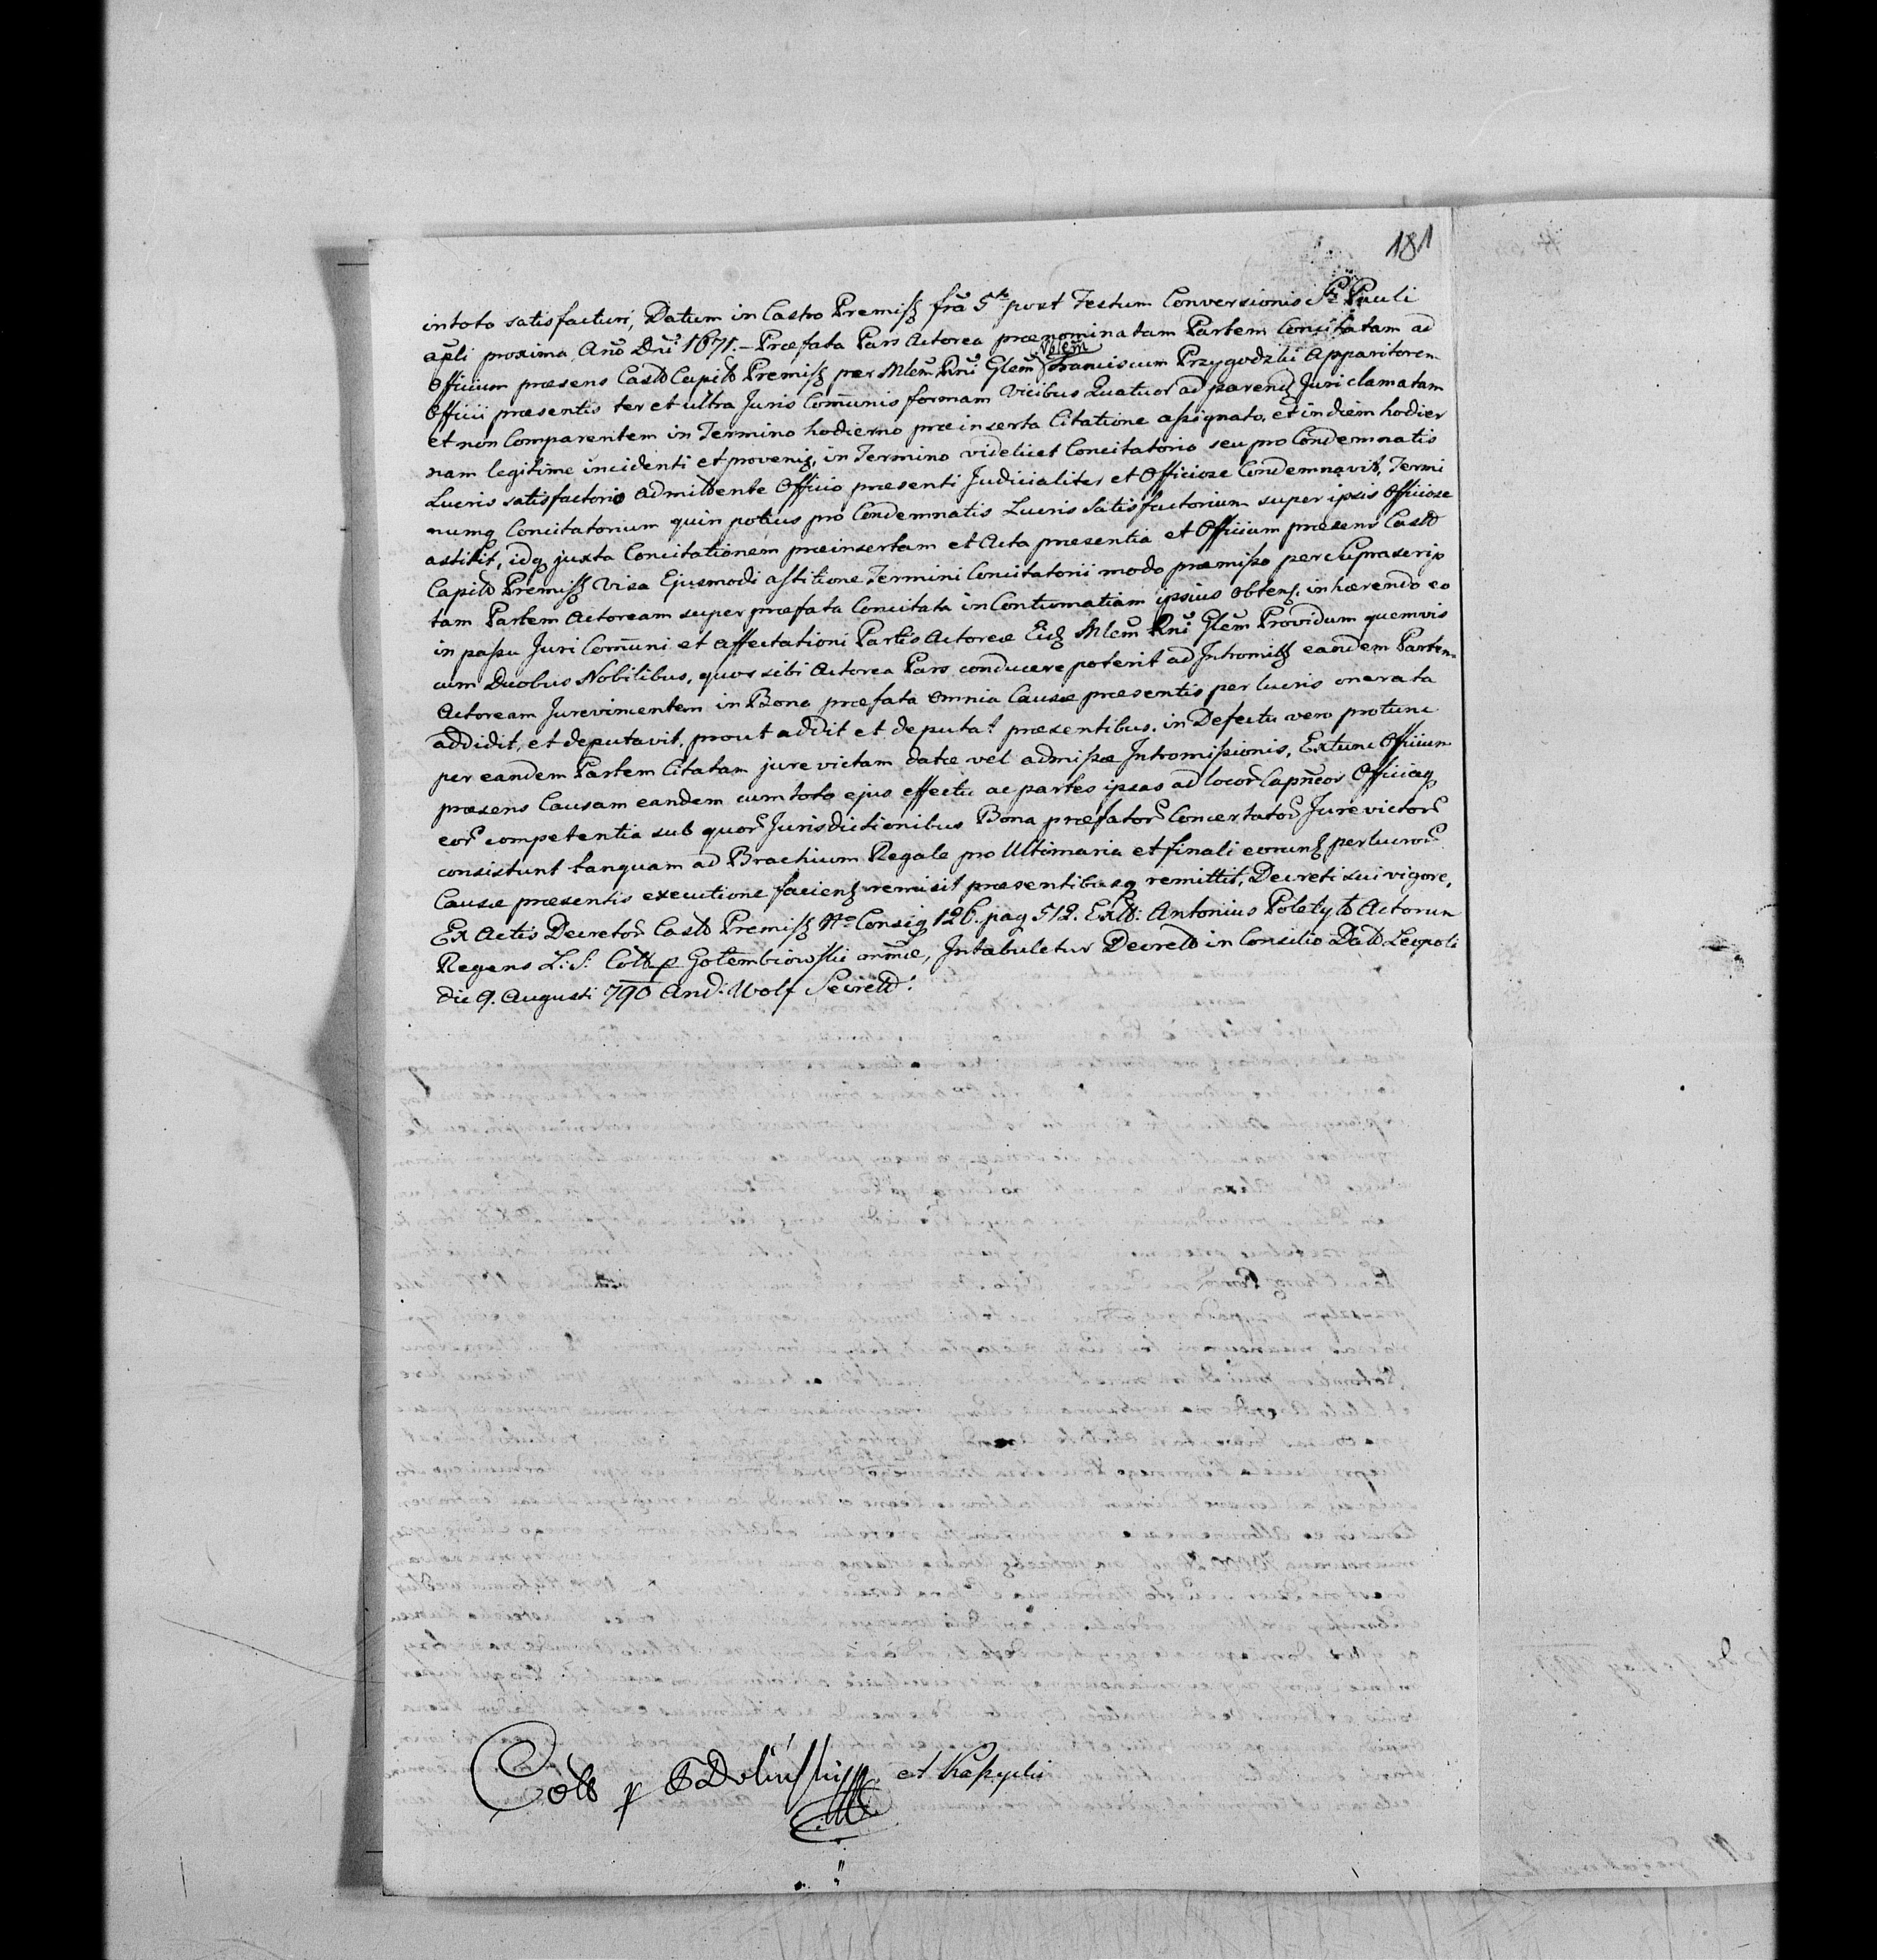 181
in toto satisfacturi, Datum in Castro Premisl fra 5ta post Festum Conversionis Sti Pauli
apli proxima Año Dni 1671. – Præfata Pars Actorea prænominatam Partem Concitatam ad
Officium præsens Castr Capitl Premisl per Mlem Rni Glem Nblem Franciscum Przygodzki Apparitorem
Officii præsentis ter et ultra Juris Comunis formam vicibus Quatuor ad parend Juri clamatam
et non Comparentem in Termino hodierno præinserta Citatione assignato, et in diem hodier
nam legitime incidenti et proveni, in Termino videlicet Concitatorio seu pro Condemnatis
Lucris satisfactorio admittente Officio præsenti Judicialiter et Officiose Condemnavit, Termi
numq Concitatorium quin potius pro Condemnatis Lucris Satisfactorium super ipsis Officiose
astitit, idq juxta Concitationem præinsertam et Acta præsentia et Officium præsens Castr
Capitl Premisl Visa Ejusmodi astitione Termini Concitatorii modo præmisso per Suprascrip
tam Partem Actoream super præfata Concitata in Contumatiam ipsius obtent, inhærendo eo
in passu Juri Comuni et affectationi Partis Actoreæ Eid Mlem Rni Glem Providum quemvis
cum Duobus Nobilibus, quos sibi Actorea Pars conducere poterit ad Intromitt eandem Partem
Actoream Jurevincentem in Bona præfata omnia Causæ præsentis per lucris onerata
addidit, et deputavit, prout addit et deputat præsentibus, in Defectu vero protunc
per eandem Partem Citatam jurevictam datæ vel admissæ Intromissionis, Extunc Officium
præsens Causam eandem cum toto ejus effectu ac partes ipsas ad locor Capneor Officiaq
eor competentia sub quor Jurisdictionibus Bona præfator Concertator Jurevictor
consistunt tanquam ad Brachium Regale pro Ultimaria et finali eorund perlucror
Causæ præsentis executione faciend remisit præsentibusq remittit, Decreti sui vigore,
Ex Actis Decretor Castr Premisl No Consig 126. pag 512. Extr: Antonius Poletyło Actorum
Regens L: S: Cott p Gołembiowski mme, Intabuletur Decreto in Consilio Dato Leopoli
die 9. Augusti 790 And: Wolf Secrett:
Cott p Doliński et Kopycki